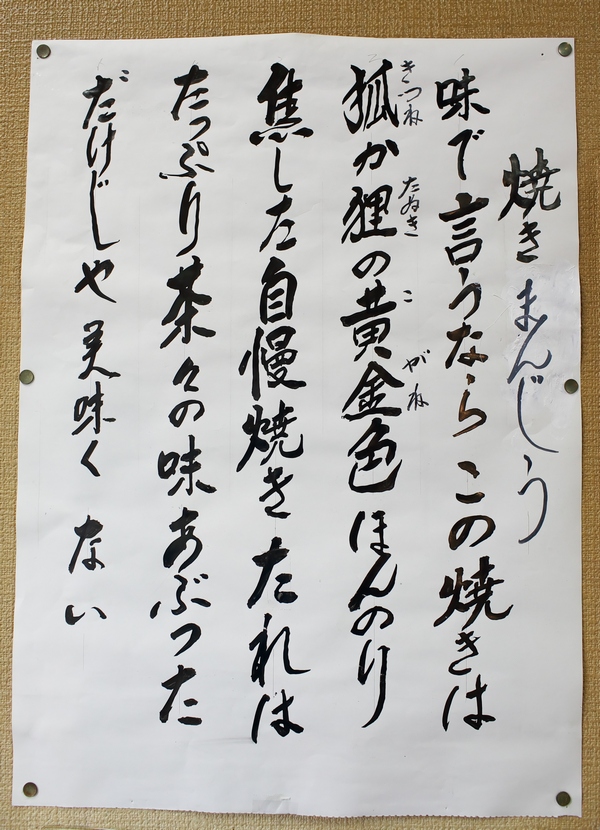 焼きまんじう
味で言うならこの焼きは
狐か狸の黄金色ほんのり
きつね
たぬき
こ
がね
焦した自慢焼きたれは
たっぷり茶々の味あぶった
だけじゃ美味くない